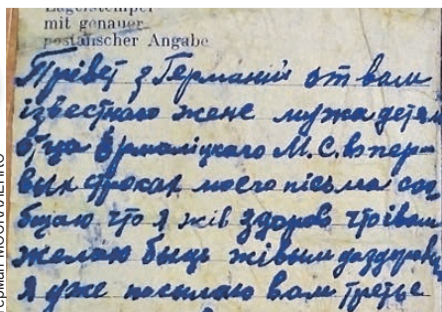 Lagerstempel
mit genauer
postalischer Angabe
Прівет з Германіи от вам
ізвестного жене мужа детям
отца Ермаліцкаго М.С. в пер-
вых строках моего пісьма соо
бщаю что я жів здоров что і вам
желаю быць жівым да здоровым
Я уже посылаю вам третье